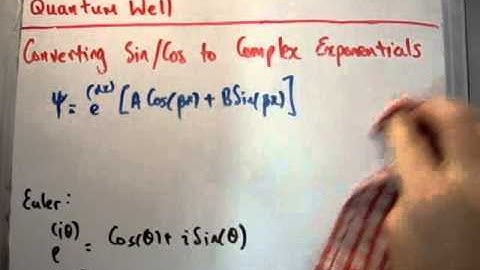 Quantum Well
Converting Sin/Cos to Complex Exponentials
ψ = e^(αx) [A Cos(βx) + B Sin(βx)]
Euler:
e^(iθ) = Cos(θ) + i Sin(θ)